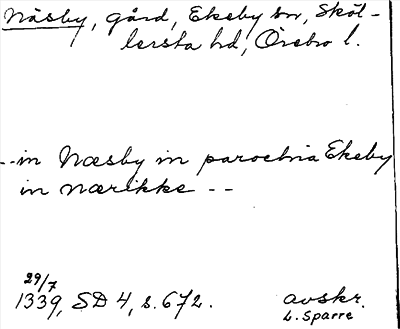 Näsby, gård, Ekeby sn, Sköl-
lersta hd, Örebro l.
--in Næsby in parochia Ekeby
in Nærikke --
29/7
1339, SD 4, s. 672.
avskr.
L. Sparre